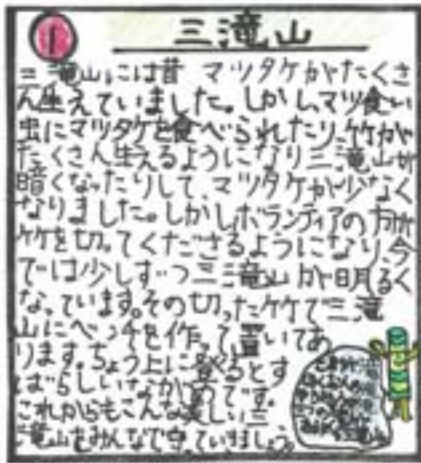 1 三滝山
三滝山には昔 マツタケがたくさ
ん生えていました。しかし、マツ食い
虫にマツタケを食べられたり、竹が
たくさん生えるようになり三滝山が
暗くなったりして、マツタケが少なく
なりました。しかしボランティアの方が
竹を切ってくださるようになり、今
では少しずつ三滝山が明るく
なっています。その切った竹で三滝
山にベンチを作って置いてあ
ります。ちょう上に登るとす
ばらしいながめです。
これからもこんな美しい三
滝山をみんなで守っていきましょう。